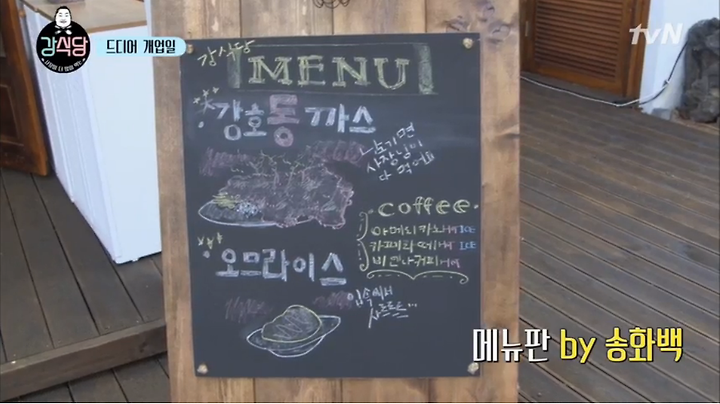 강식당
드디어 개업일
tvN
강식당
MENU
강호동까스
남기면
사장님이
다 먹어!!
coffee
아메리카노 HOT ICE
카페라떼 HOT ICE
비엔나커피 HOT
오므라이스
입속에서
사르르르...
메뉴판 by 송화백